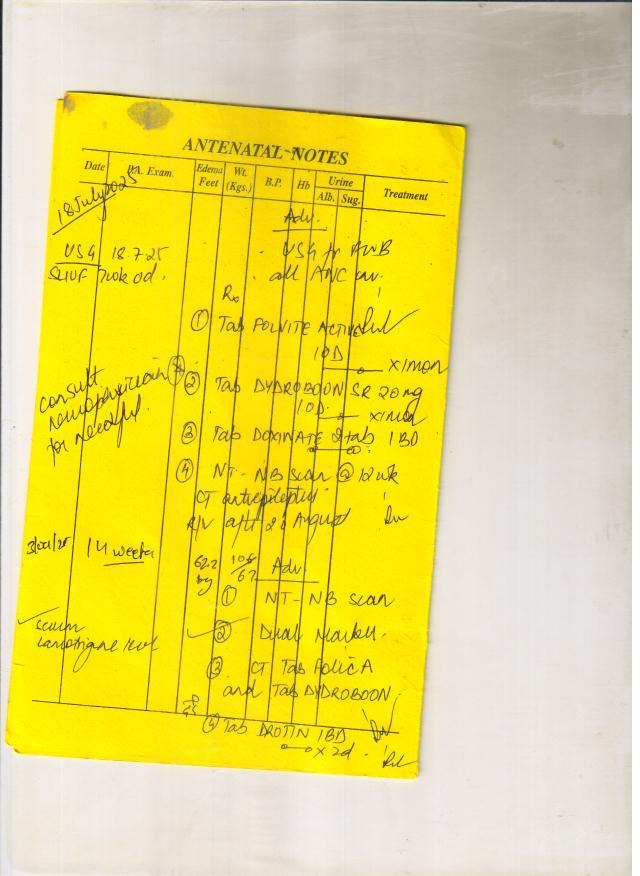 ANTENATAL NOTES
Date P.A. Exam. Edema Feet Wt. (Kgs.) B.P. Hb Urine Alb. Sug. Treatment
18 July 2025
Adv.
USG 18.7.25 USG for FWB
SLIUF 7wk 0d. all ANC inv.
Rx
① Tab FOLVITE ACTIVE
1OD x1mon
② Tab DYDROBOON SR 20mg
1OD x1mon
consult
neurophysician
for needful.
③ Tab DOXINATE 2 tab 1BD
④ NT-NB scan @ 12wk
CT antiepileptic
R/V after 20 August
14 weeks 62.2 kg 106/67 Adv.
① NT-NB scan
serum
lamotrigine level
② Dual Marker.
③ CT Tab FOLIC A
and Tab DYDROBOON
④ Tab DROTIN 1BD
x 2d.